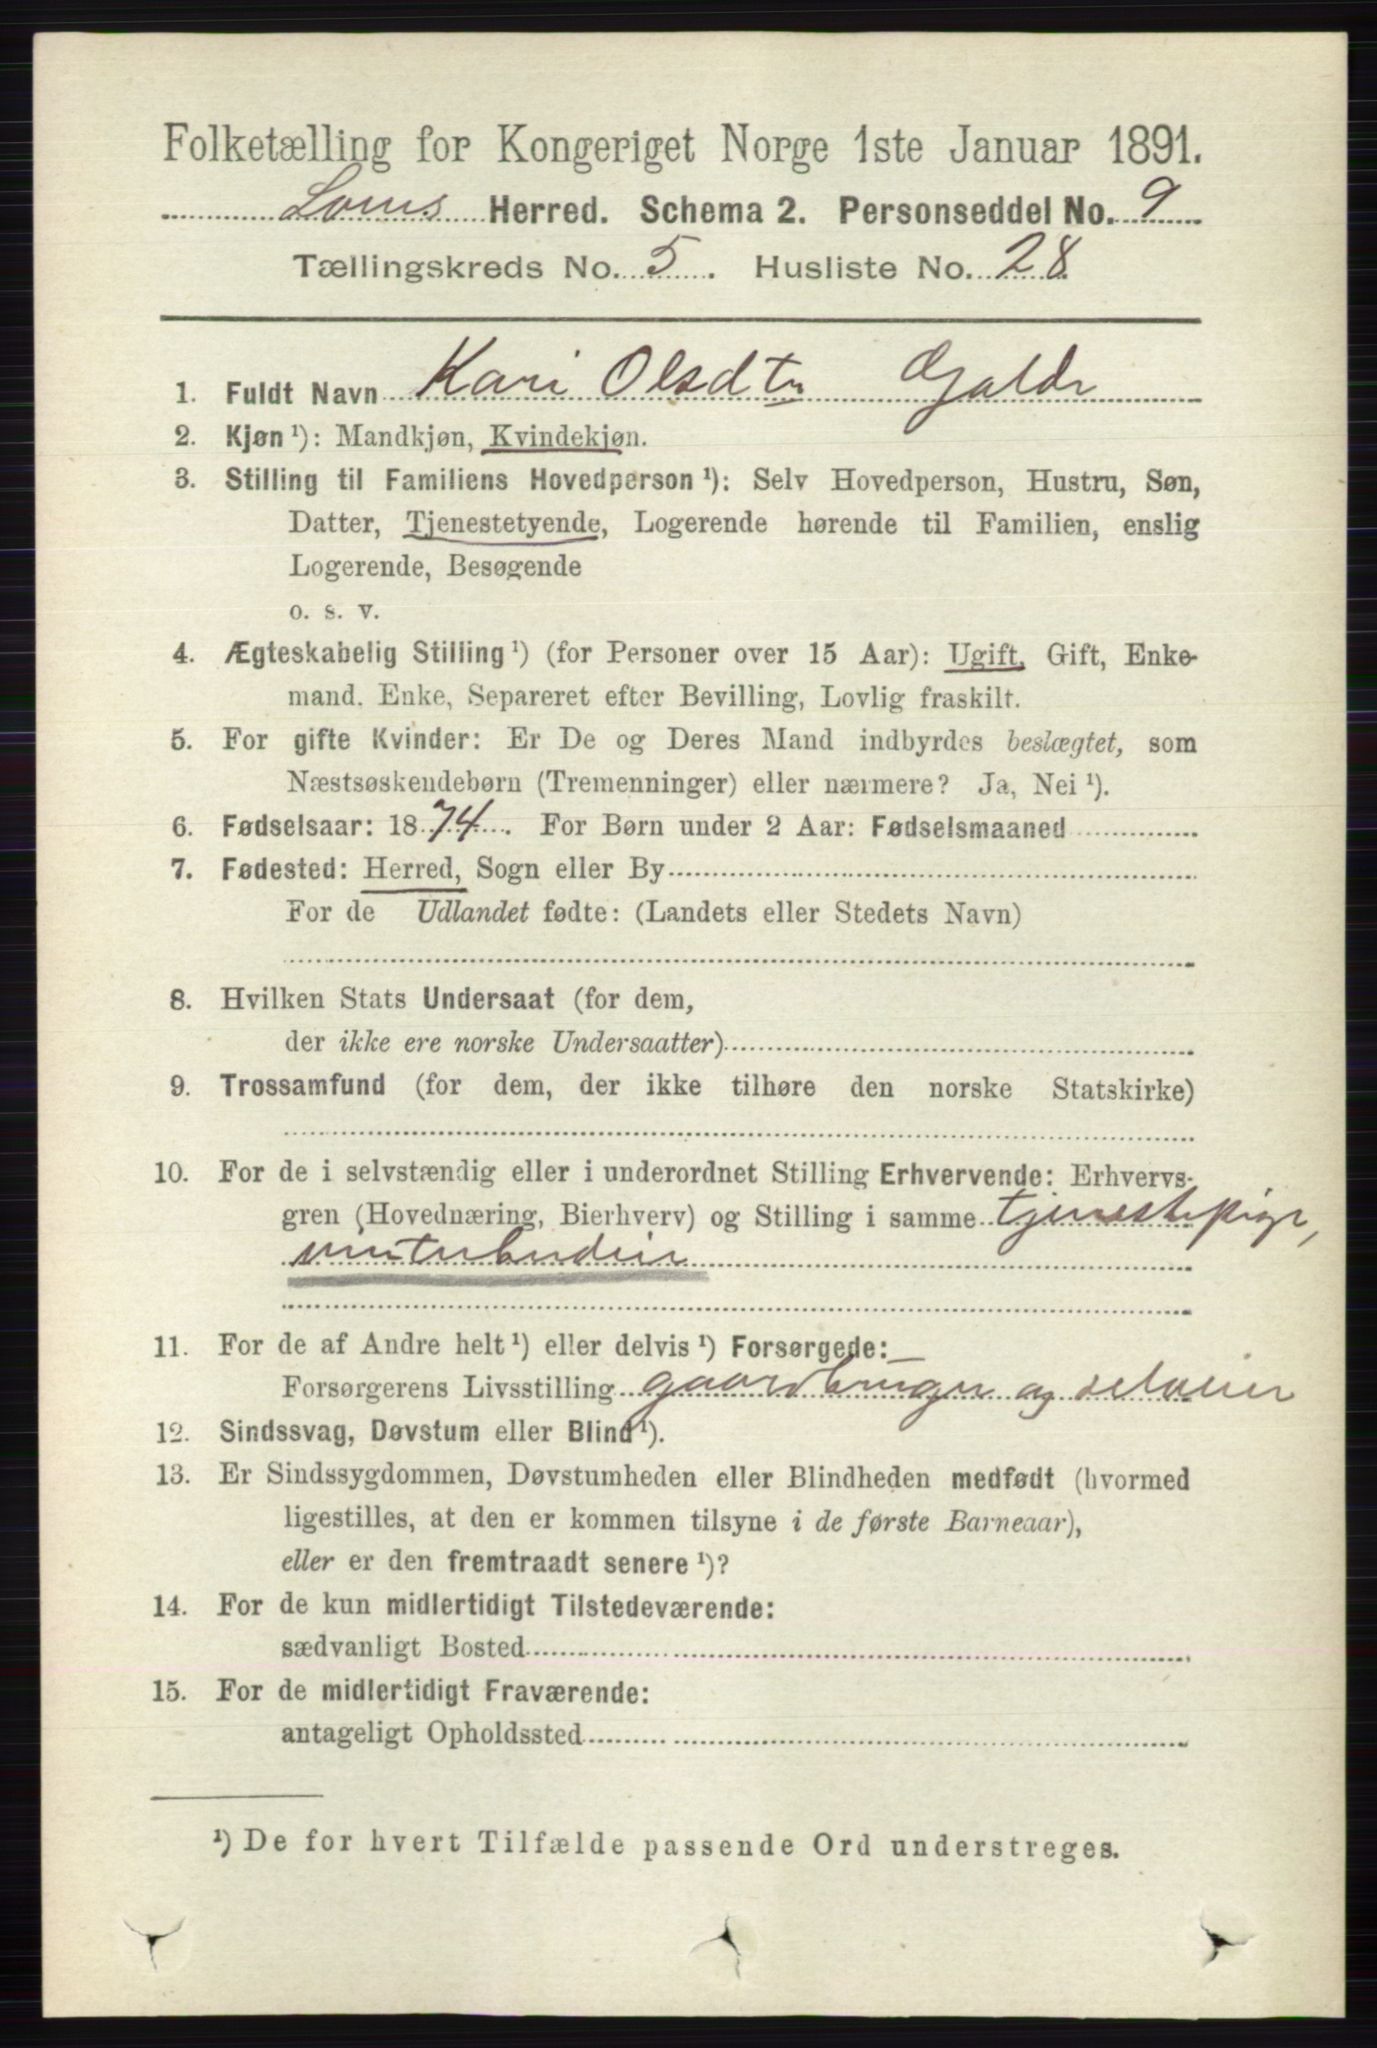 Folketælling for Kongeriget Norge 1ste Januar 1891.
Loms Herred. Schema 2. Personseddel No. 9
Tællingskreds No. 5. Husliste No. 28
1. Fuldt Navn Kari Olsdtr Galde
2. Kjøn ¹): Mandkjøn, Kvindekjøn.
3. Stilling til Familiens Hovedperson ¹): Selv Hovedperson, Hustru, Søn,
Datter, Tjenestetyende, Logerende hørende til Familien, enslig
Logerende, Besøgende
o. s. v.
4. Ægteskabelig Stilling ¹) (for Personer over 15 Aar): Ugift, Gift, Enke-
mand, Enke, Separeret efter Bevilling, Lovlig fraskilt.
5. For gifte Kvinder: Er De og Deres Mand indbyrdes beslægtet, som
Næstsøskendebørn (Tremenninger) eller nærmere? Ja, Nei ¹).
6. Fødselsaar: 1874. For Børn under 2 Aar: Fødselsmaaned
7. Fødested: Herred, Sogn eller By
For de Udlandet fødte: (Landets eller Stedets Navn)
8. Hvilken Stats Undersaat (for dem,
der ikke ere norske Undersaatter)
9. Trossamfund (for dem, der ikke tilhøre den norske Statskirke)
10. For de i selvstændig eller i underordnet Stilling Erhvervende: Erhvervs-
gren (Hovednæring, Bierhverv) og Stilling i samme tjenestepige,
vinterbudeie
11. For de af Andre helt ¹) eller delvis ¹) Forsørgede:
Forsørgerens Livsstilling gaardbruger og selveier
12. Sindssvag, Døvstum eller Blind ¹).
13. Er Sindssygdommen, Døvstumheden eller Blindheden medfødt (hvormed
ligestilles, at den er kommen tilsyne i de første Barneaar),
eller er den fremtraadt senere ¹)?
14. For de kun midlertidigt Tilstedeværende:
sædvanligt Bosted
15. For de midlertidigt Fraværende:
antageligt Opholdssted
¹) De for hvert Tilfælde passende Ord understreges.